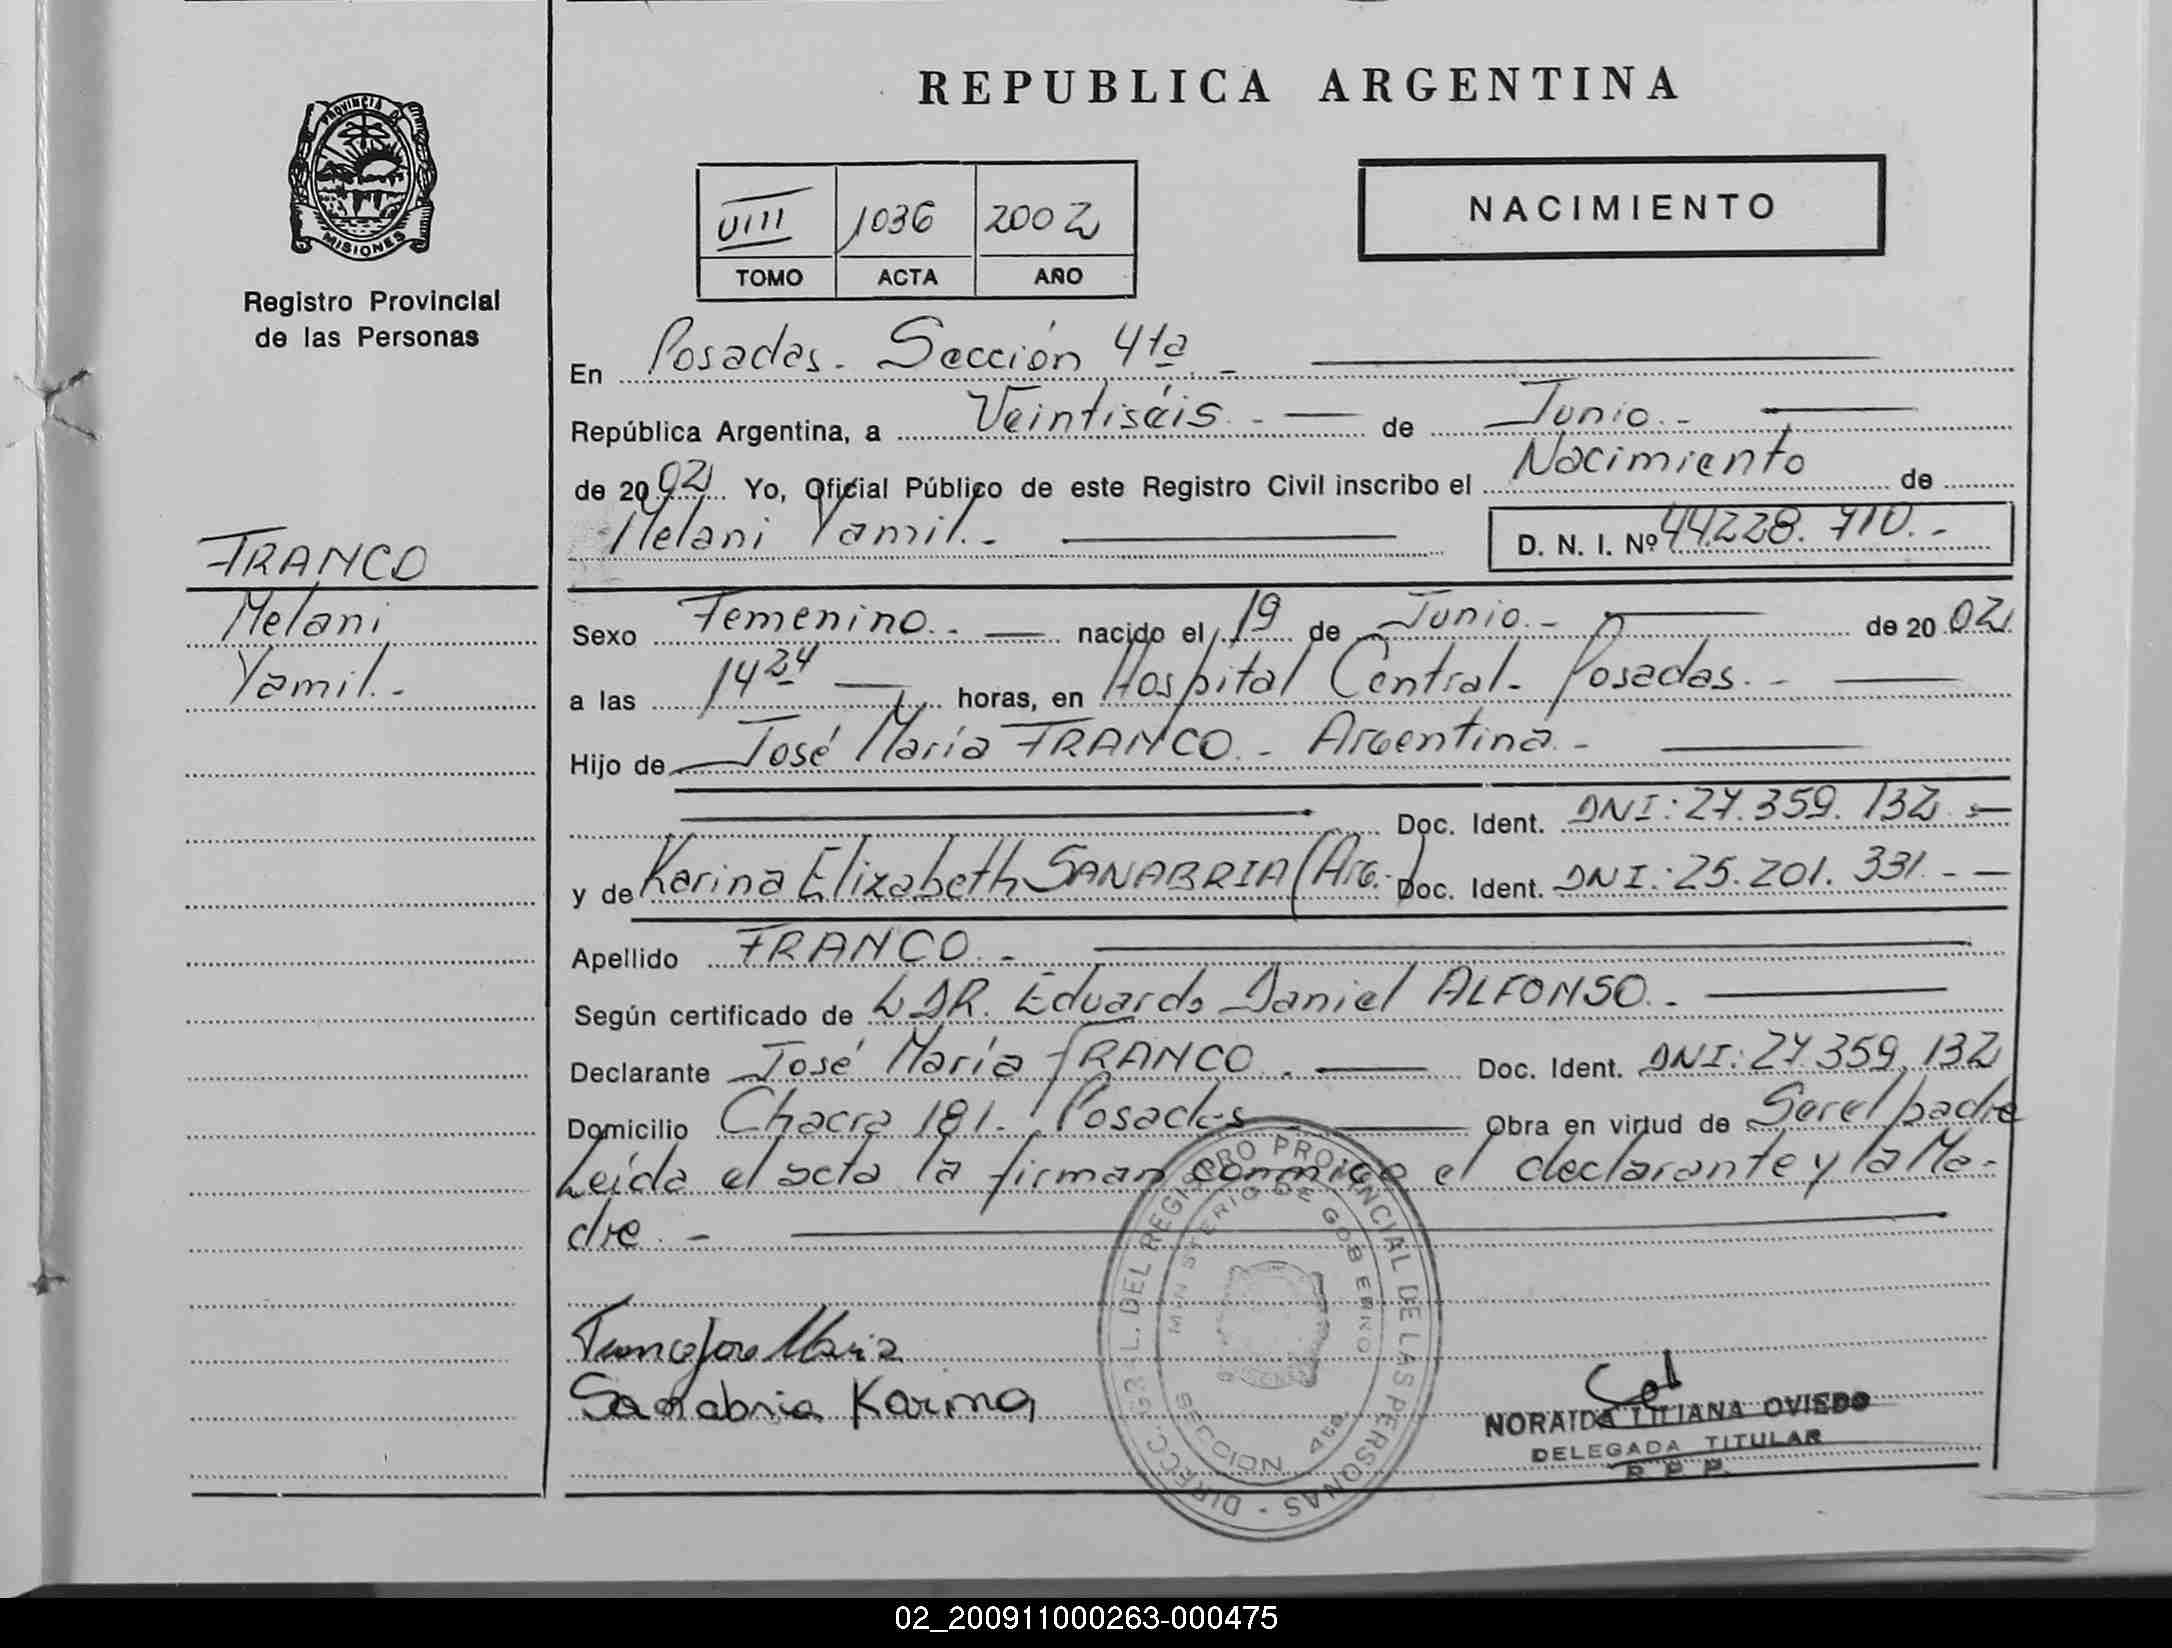 REPUBLICA ARGENTINA
PROVINCIA DE
MISIONES
Registro Provincial
de las Personas
VIII 1036 2002
TOMO ACTA AÑO
NACIMIENTO
En Posadas. Sección 4ta. -
República Argentina, a Veintiséis. - de Junio. -
de 2002 Yo, Oficial Público de este Registro Civil inscribo el Nacimiento de
Melani Yamil. - D. N. I. Nº 44.228.710. -
FRANCO
Melani
Yamil. -
Sexo Femenino. - nacido el 19 de Junio. - de 2002
a las 14 34 horas, en Hospital Central - Posadas. -
Hijo de José María FRANCO - Argentina -
Doc. Ident. DNI: 27.359.132 -
y de Karina Elizabeth SANABRIA (Arg. -) Doc. Ident. DNI: 25.201.331 - -
Apellido FRANCO. -
Según certificado de DR. Eduardo Daniel ALFONSO. -
Declarante José María FRANCO. Doc. Ident. DNI: 27.359.132
Domicilio Chacra 181. Posadas - Obra en virtud de Ser el padre
Leída el acta la firman conmigo el declarante y la Ma-
dre. -
Franco Jose Maria
Sanabria Karina
DIRECC. GRAL. DEL REGISTRO PROVINCIAL DE LAS PERSONAS -
MINISTERIO DE GOBIERNO
SECCION 4ta
NORAIDA LILIANA OVIEDO
DELEGADA TITULAR
R. P. P.
02_200911000263-000475